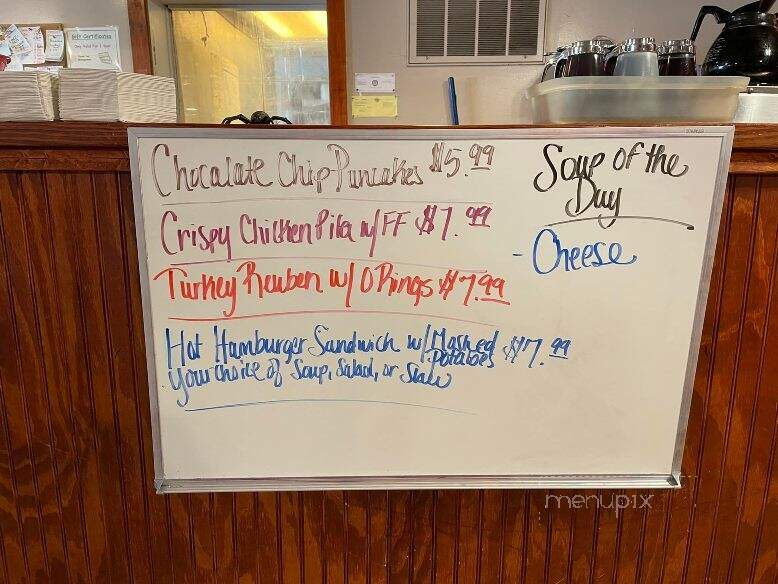 Chocalate Chip Pancakes $5.99
Crispy Chicken Pita w/ FF $7.99
Turkey Reuben w/ O Rings $7.99
Hot Hamburger Sandwich w/ Mashed Potatoes $7.99
your choice of Soup, Salad, or Slaw
Soup of the
Day
- Cheese
Gift Certificates
menupix